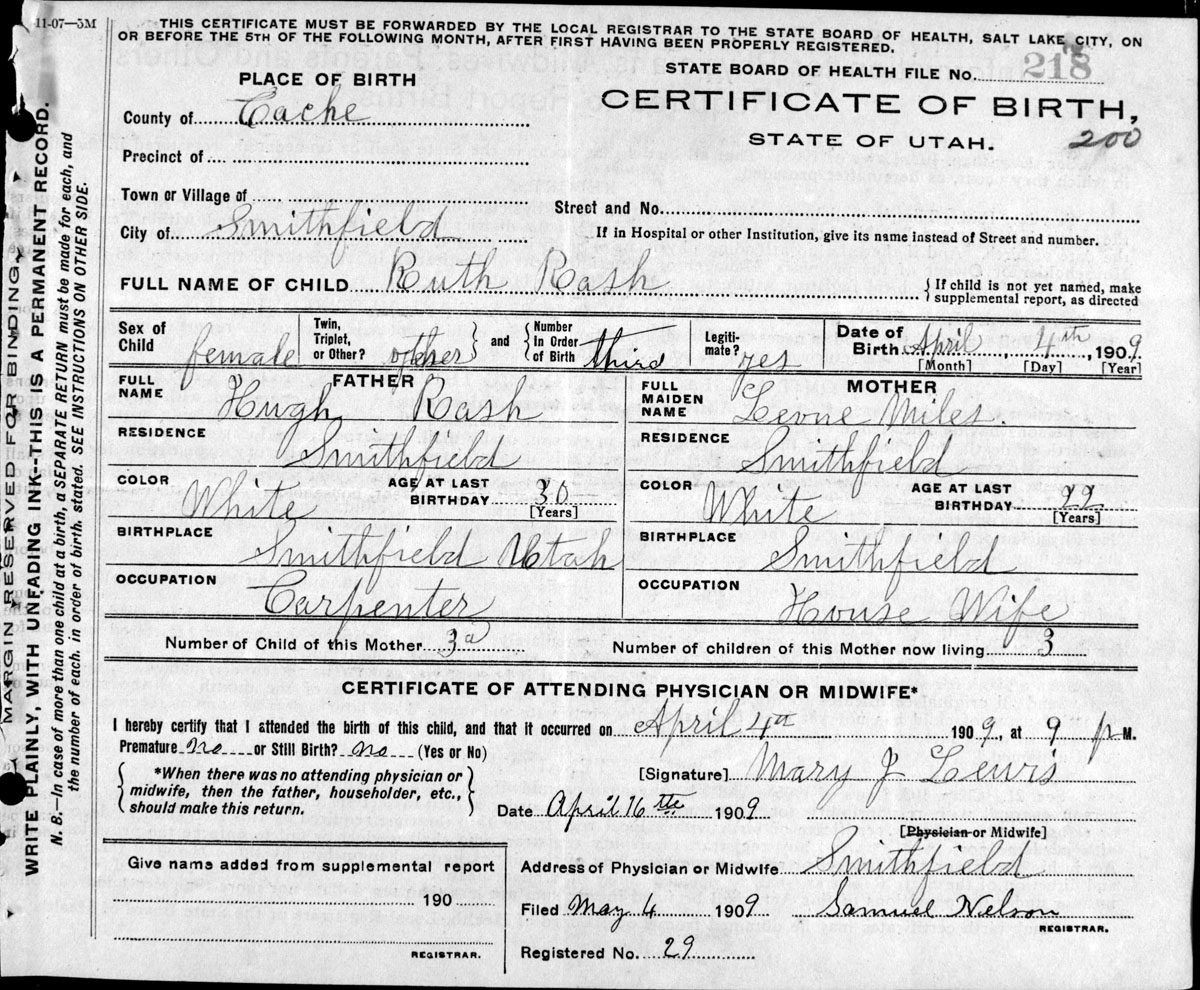 11-07—5M
THIS CERTIFICATE MUST BE FORWARDED BY THE LOCAL REGISTRAR TO THE STATE BOARD OF HEALTH, SALT LAKE CITY, ON
OR BEFORE THE 5TH OF THE FOLLOWING MONTH, AFTER FIRST HAVING BEEN PROPERLY REGISTERED.
MARGIN RESERVED FOR BINDING
WRITE PLAINLY, WITH UNFADING INK--THIS IS A PERMANENT RECORD.
N. B.—In case of more than one child at a birth, a SEPARATE RETURN must be made for each, and
the number of each, in order of birth, stated. SEE INSTRUCTIONS ON OTHER SIDE.
PLACE OF BIRTH
STATE BOARD OF HEALTH FILE No. 218
CERTIFICATE OF BIRTH,
STATE OF UTAH.
200
County of Cache
Precinct of
Town or Village of
City of Smithfield
Street and No.
If in Hospital or other Institution, give its name instead of Street and number.
FULL NAME OF CHILD Ruth Rash
If child is not yet named, make
supplemental report, as directed
Sex of Child female
Twin, Triplet, or Other? other
and Number In Order of Birth third
Legiti-mate? yes
Date of Birth April 4th, 1909
[Month] [Day] [Year]
FATHER
FULL NAME Hugh Rash
RESIDENCE Smithfield
COLOR White AGE AT LAST BIRTHDAY 30 [Years]
BIRTHPLACE Smithfield Utah
OCCUPATION Carpenter
MOTHER
FULL MAIDEN NAME Leone Miles.
RESIDENCE Smithfield
COLOR White AGE AT LAST BIRTHDAY 22 [Years]
BIRTHPLACE Smithfield
OCCUPATION House Wife
Number of Child of this Mother 3d Number of children of this Mother now living 3
CERTIFICATE OF ATTENDING PHYSICIAN OR MIDWIFE*
I hereby certify that I attended the birth of this child, and that it occurred on April 4th 1909, at 9 p M.
Premature no or Still Birth? no (Yes or No)
*When there was no attending physician or
midwife, then the father, householder, etc.,
should make this return.
[Signature] Mary J Lewis
Date April 16th 1909
[Physician or Midwife]
Give name added from supplemental report
190
REGISTRAR.
Address of Physician or Midwife Smithfield
Filed May 4 1909 Samuel Nelson
REGISTRAR.
Registered No. 29